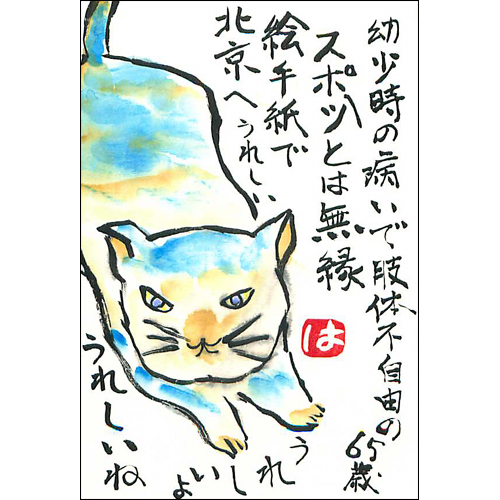 幼少時の病いで肢体不自由の65歳
スポーツとは無縁
絵手紙で
北京へうれしい
うれしいよ
うれしいね
は